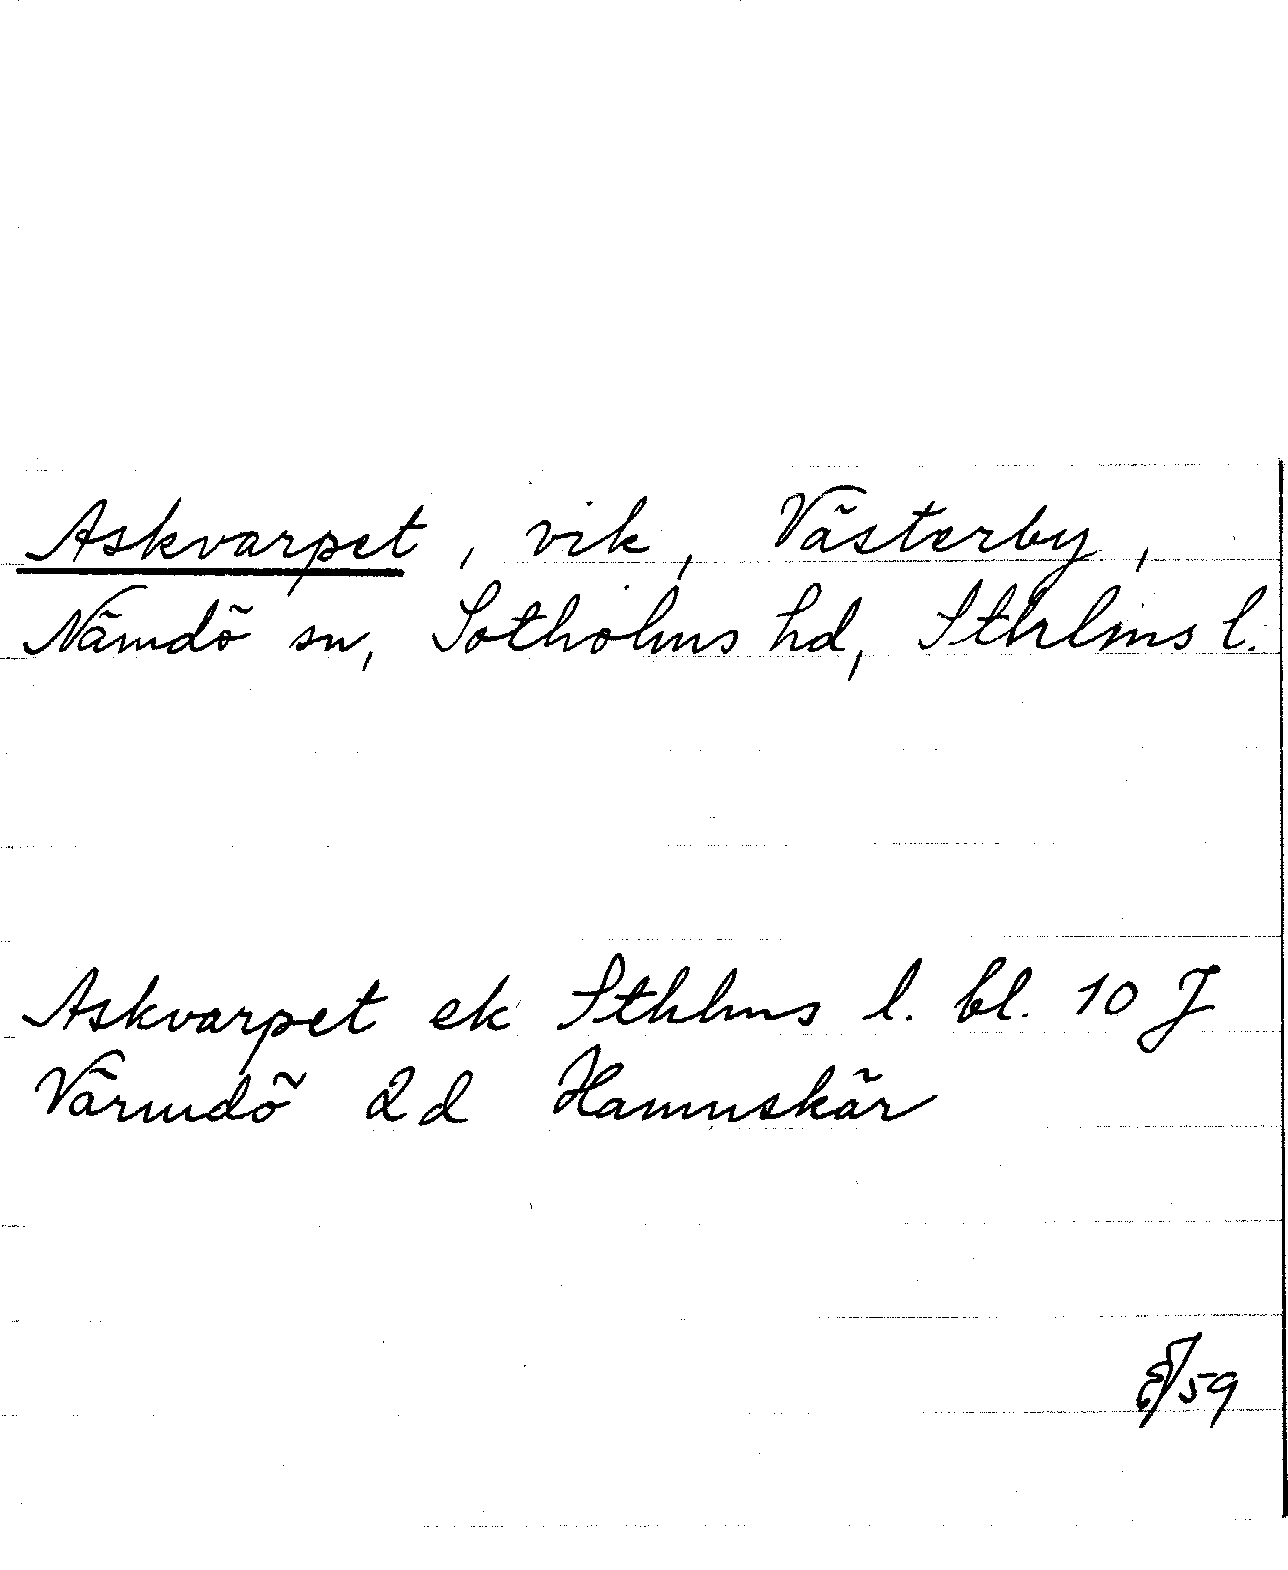 Askvarpet, vik, Västerby,
Nämdö sn, Sotholms hd, Sthlms l.
Askvarpet ek Sthlms l. bl. 10 J
Värmdö 2d Hamnskär
/59